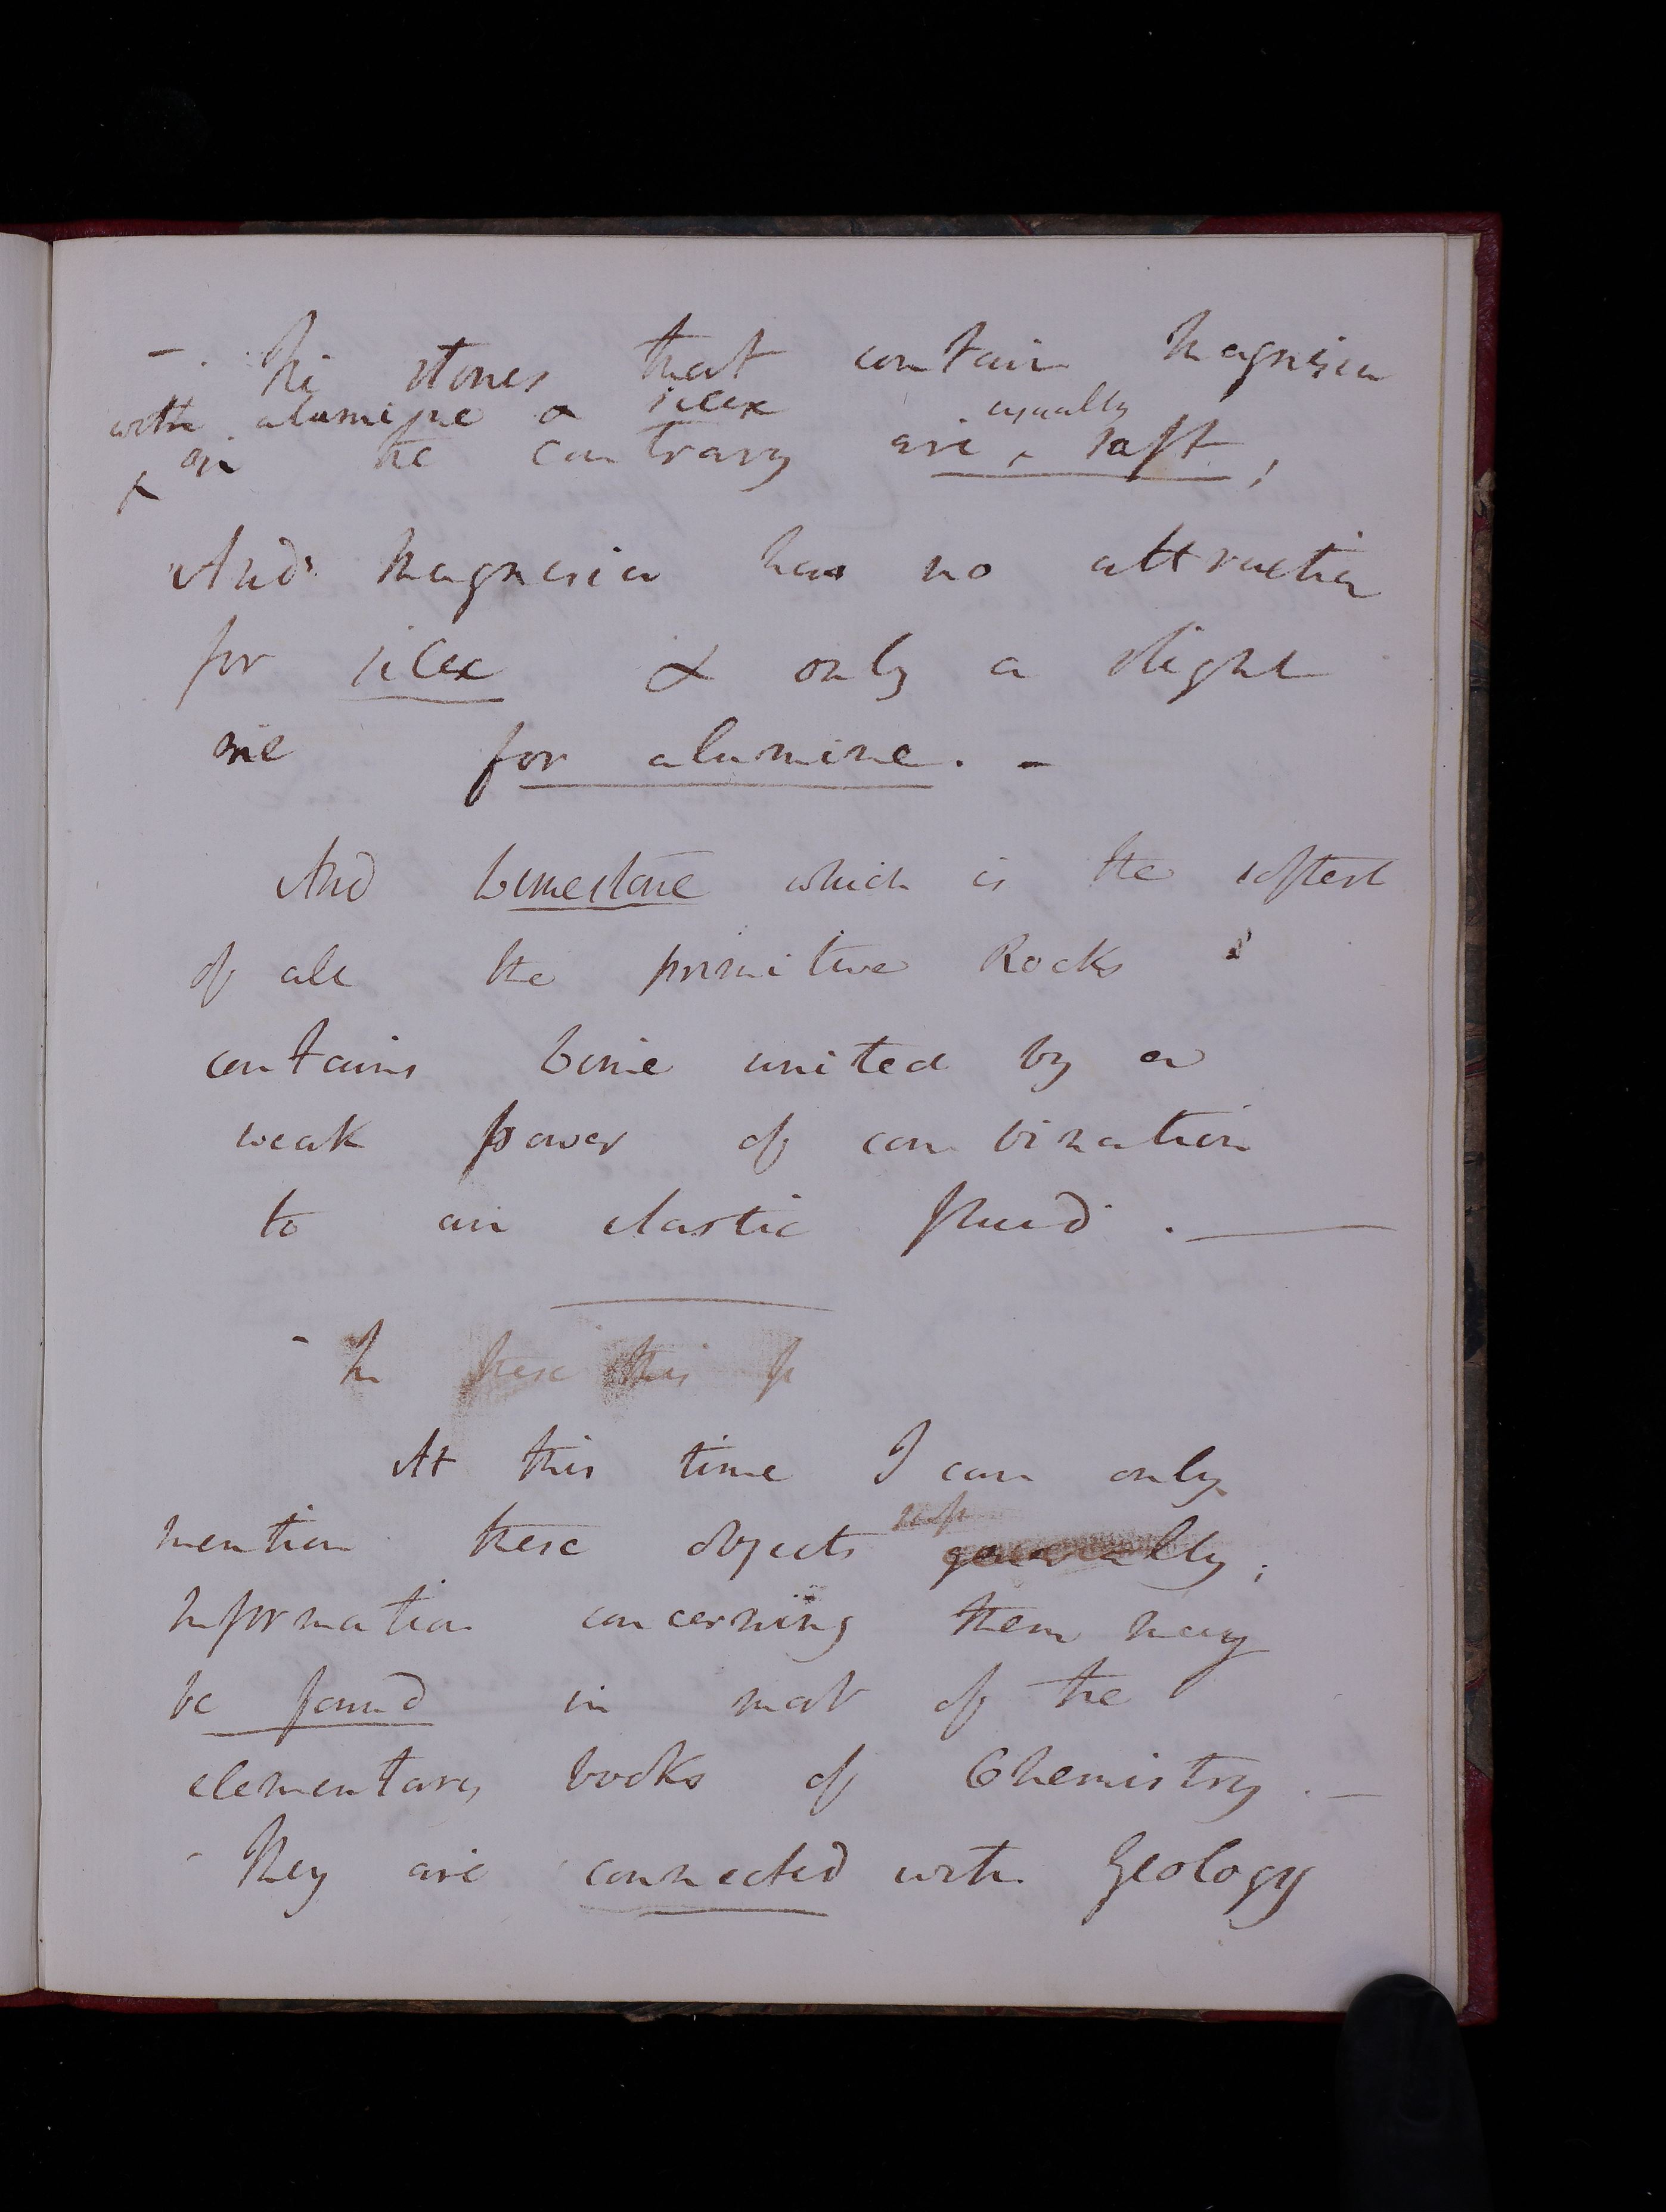 - The stones that contain Magnesia
with alumine & silex usually
x on the contrary are ^ soft;
And Magnesia has no attraction
for silex & only a slight
one for alumine. -
And Limestone which is the softest
of all the primitive Rocks
contains Lime united by a
weak power of combination
to an elastic fluid. —
- In these this
At this time I can only
mention these objects generally;
Information concerning them may
be found in most of the
elementary books of Chemistry. —
- They are connected with Geology